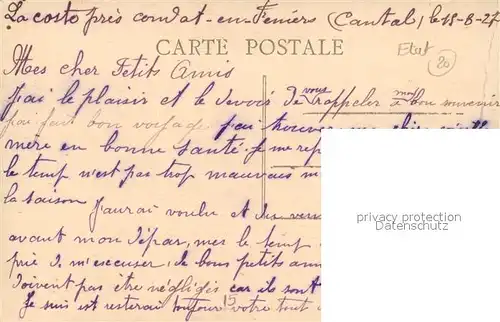 La coste près condat-en-Feniers (Cantal) le 18-8-27
CARTE POSTALE
Etat
20
Mes cher Petits Amis
J'ai le plaisir et le devois de vous rappeler moi a bon souvenir
j'ai fait bon voyage j'ai trouver ma chère
mere en bonne santé. Je me rep
le temp n'est pas trop mauvais
la saison
J'aurai voulu et
avant mon Départ, mes le temp
prie de m'escuser, de bons petits ami
doivent pas être négligés car ils sont
Je suis est resterai toujour votre tout
15
privacy protection
Datenschutz